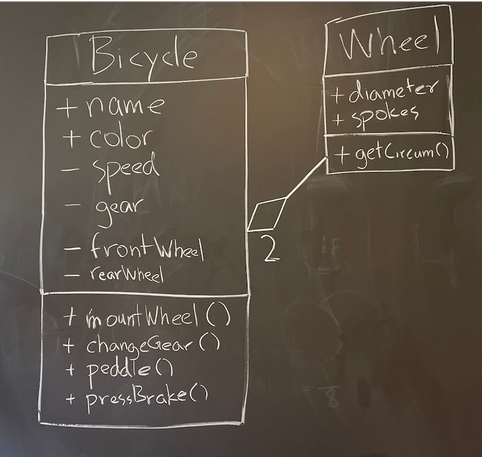 Bicycle
+ name
+ color
- speed
- gear
- frontWheel
- rearWheel
+ mountWheel()
+ changeGear()
+ peddle()
+ pressBrake()
2
Wheel
+ diameter
+ spokes
+ getCircum()